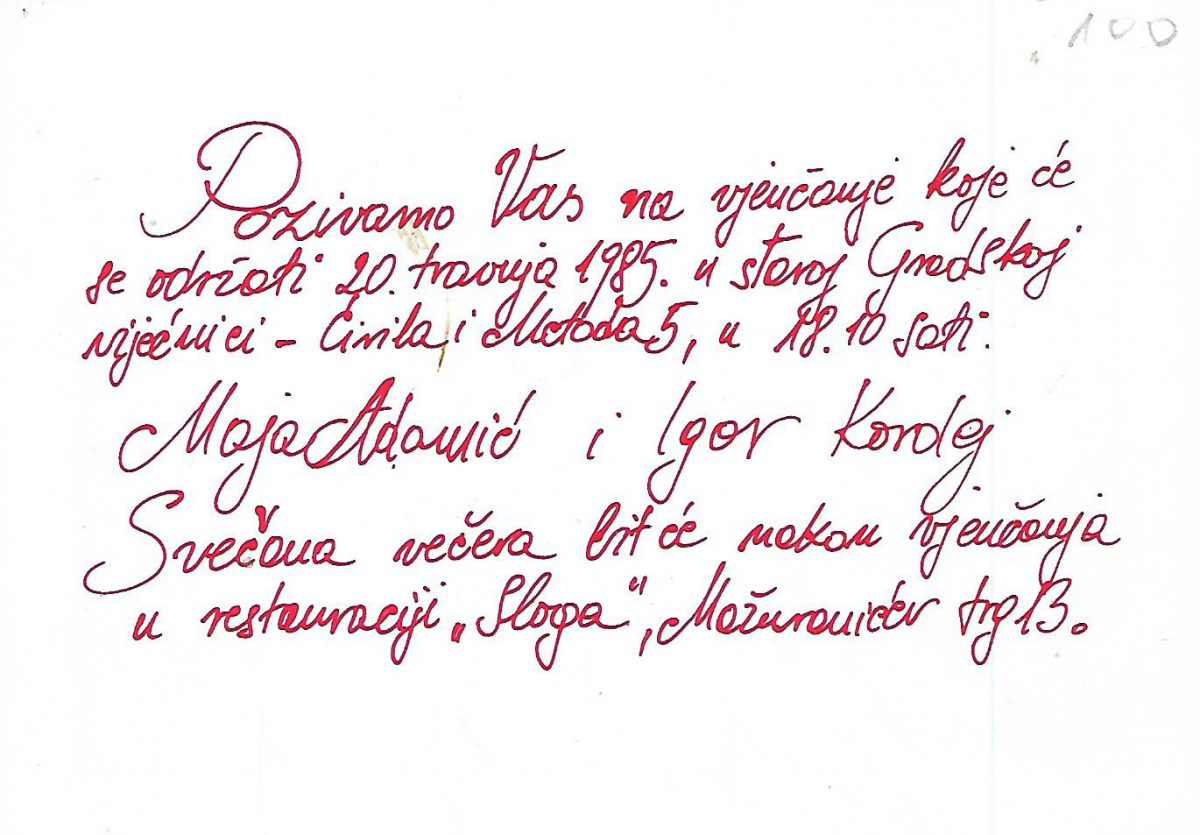 100
Pozivamo Vas na vjenčanje koje će
se održati 20. travnja 1985. u staroj Gradskoj
vijećnici - Ćirila i Metoda 5, u 18.10 sati.
Maja Adamić i Igor Kordej
Svečana večera bit će nakon vjenčanja
u restauraciji „Sloga", Mažuranićev trg 13.